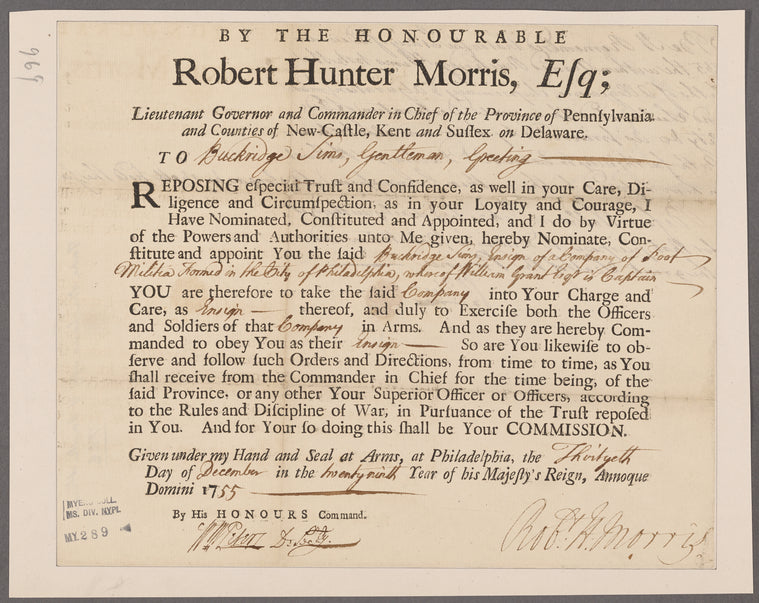 BY THE HONOURABLE
Robert Hunter Morris, Eſq;
Lieutenant Governor and Commander in Chief of the Province of Pennſylvania
and Counties of New-Caſtle, Kent and Suſſex on Delaware.
TO Buckridge Sims, Gentleman, Greeting
REPOSING eſpecial Truſt and Confidence, as well in your Care, Di-
ligence and Circumſpection, as in your Loyalty and Courage, I
Have Nominated, Conſtituted and Appointed, and I do by Virtue
of the Powers and Authorities unto Me given, hereby Nominate, Con-
ſtitute and appoint You the ſaid Buckridge Sims, Ensign of a Company of Foot
Militia Formed in the City of Philadelphia, whereof William Grant Esqr is Captain
YOU are therefore to take the ſaid Company into Your Charge and
Care, as Ensign thereof, and duly to Exerciſe both the Officers
and Soldiers of that Company in Arms. And as they are hereby Com-
manded to obey You as their Ensign So are You likewiſe to ob-
ſerve and follow ſuch Orders and Directions, from time to time, as You
ſhall receive from the Commander in Chief for the time being, of the
ſaid Province, or any other Your Superior Officer or Officers, according
to the Rules and Diſcipline of War, in Purſuance of the Truſt repoſed
in You. And for Your ſo doing this ſhall be Your COMMISSION.
Given under my Hand and Seal at Arms, at Philadelphia, the Thirtyeth
Day of December in the twenty ninth Year of his Majeſty's Reign, Annoque
Domini 1755
By His HONOURS Command.
Robt. H. Morris
MYERS COLL.
MS. DIV. NYPL
MY 289
969